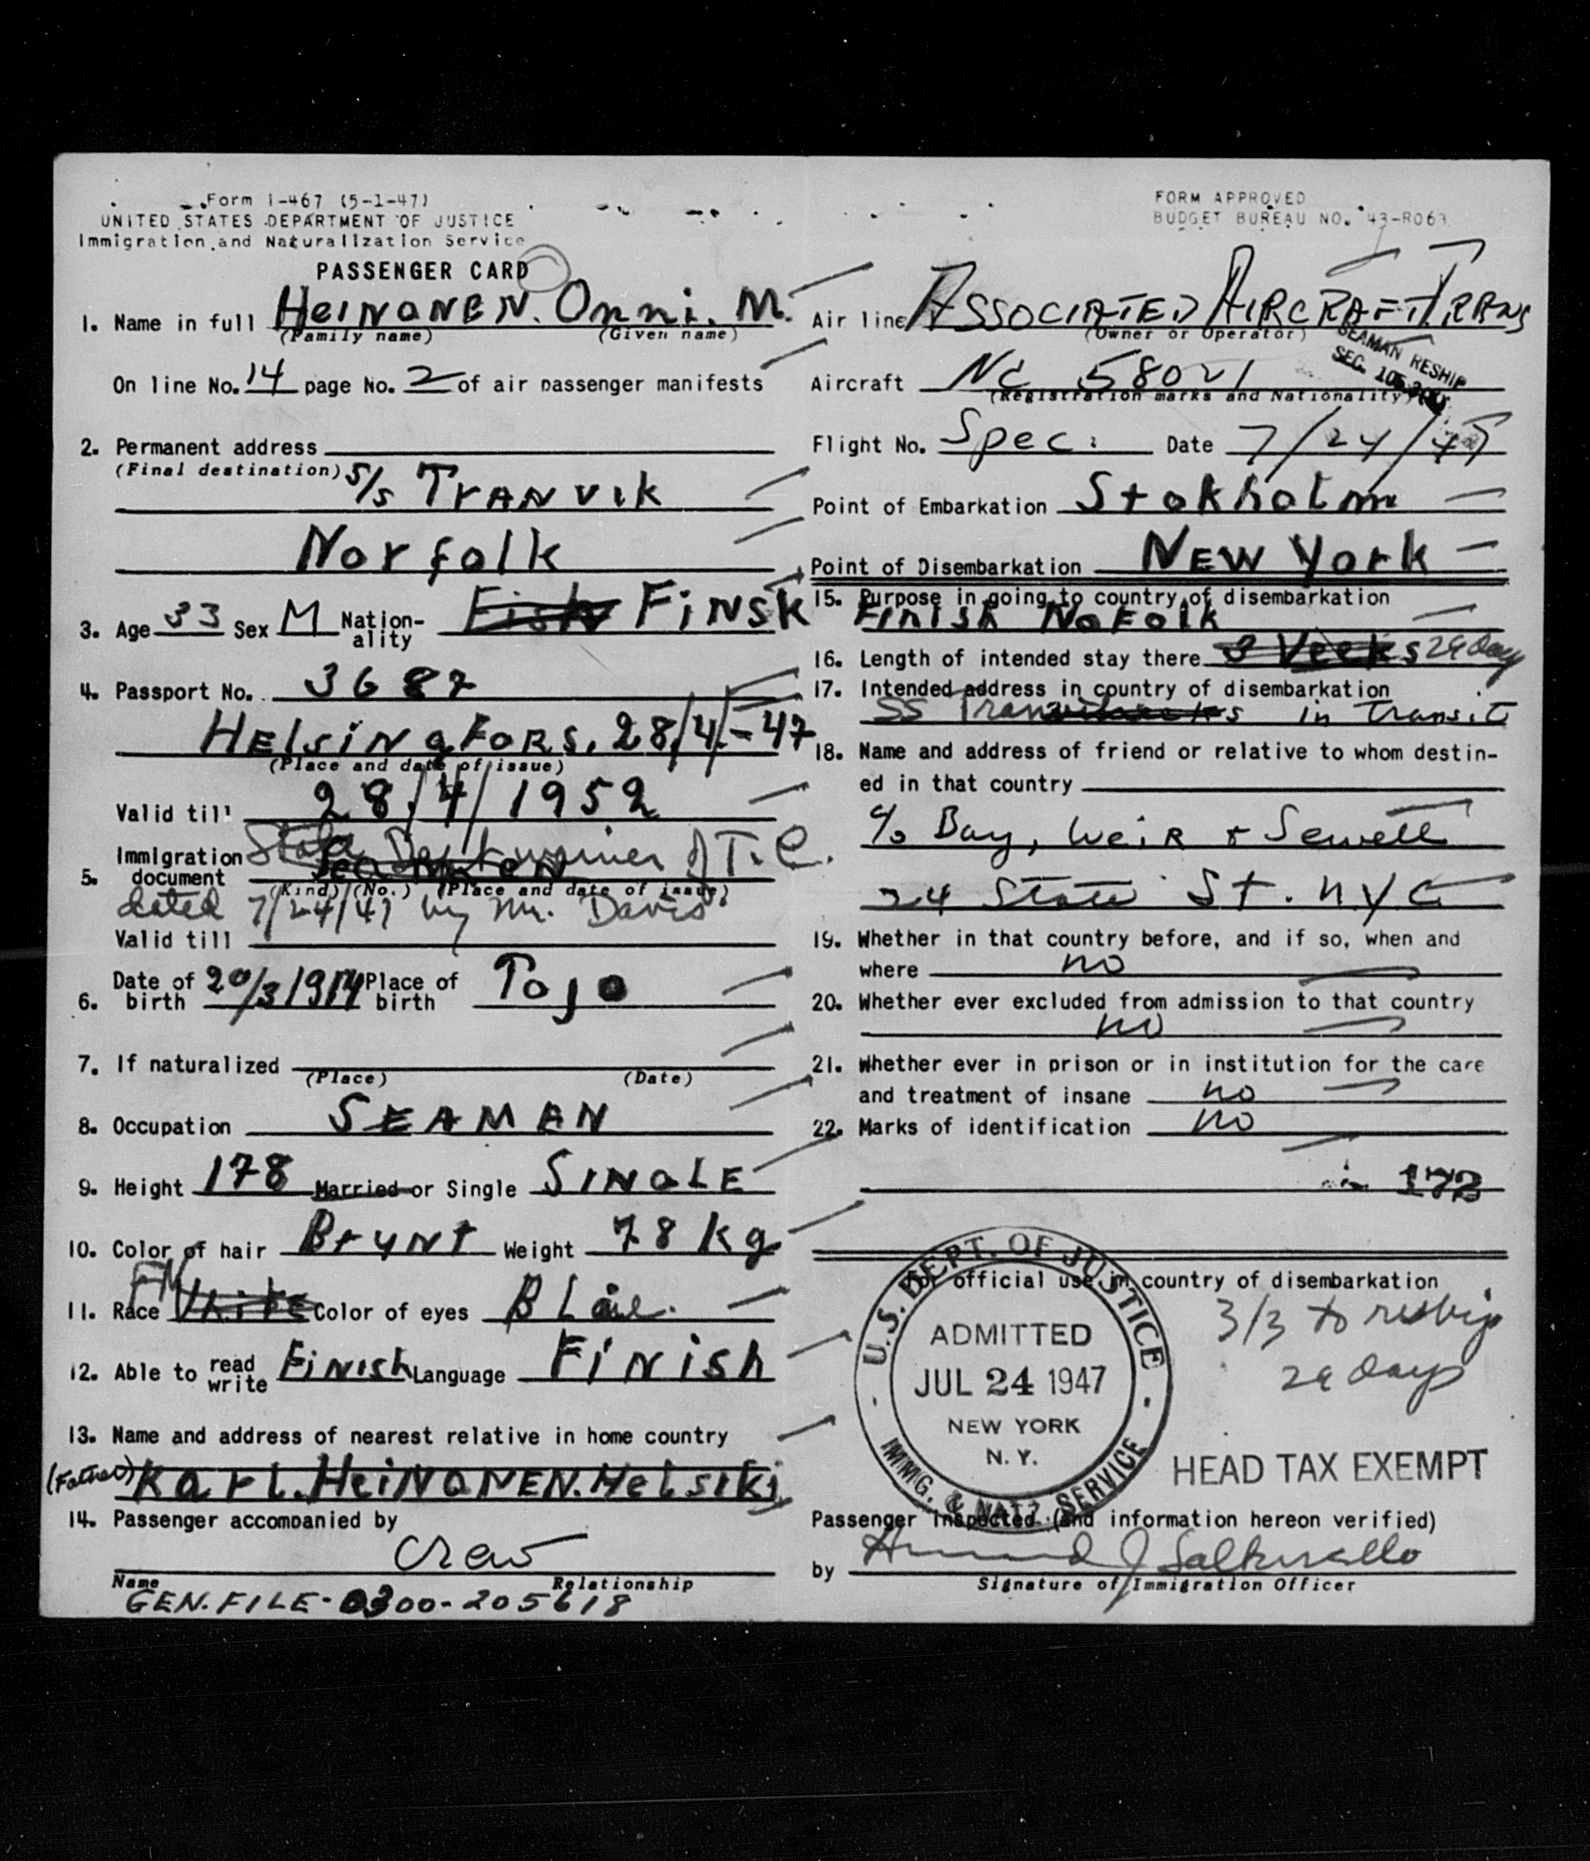 Form I-467 (5-1-47)
UNITED STATES DEPARTMENT OF JUSTICE
Immigration and Naturalization Service
PASSENGER CARD
FORM APPROVED
BUDGET BUREAU NO. 43-R063
1. Name in full HEINONEN. Onni. M.
(Family name) (Given name)
On line No. 14 page No. 2 of air passenger manifests
2. Permanent address
(Final destination) S/S TRANVIK
Norfolk
3. Age 33 Sex M Nationality FINSK
4. Passport No. 3687
HELSINGFORS. 28/4-47
(Place and date of issue)
Valid till 28/4/1952
5. Immigration document State Dept. waiver of T.C.
(Kind) (No.) (Place and date of issue)
dated 7/24/47 by Mr. Davis
Valid till
6. Date of birth 20/3 1914 Place of birth Tojo
7. If naturalized
(Place) (Date)
8. Occupation SEAMAN
9. Height 178 Married or Single SINGLE
10. Color of hair BRYNT Weight 78 kg
11. Race FIN White Color of eyes Blaue.
12. Able to read write FINISH Language FINISH
13. Name and address of nearest relative in home country
(Father) Karl. HEINONEN. Helsiki
14. Passenger accompanied by
Crew
Name Relationship
GEN. FILE-0300-205618
Air line ASSOCIATED AIRCRAFT TRANS
(Owner or Operator)
SEAMAN RESHIP
SEC.
Aircraft NC 58021
(Registration marks and Nationality)
Flight No. Spec: Date 7/24/47
Point of Embarkation Stokholm
Point of Disembarkation NEW York
15. Purpose in going to country of disembarkation
FINISH NoFolk
16. Length of intended stay there 3 Veeks 29 days
17. Intended address in country of disembarkation
SS Tranvik in transit
18. Name and address of friend or relative to whom destin-
ed in that country
c/o Bay, Weir & Sewell
24 State St. NYC
19. Whether in that country before, and if so, when and
where no
20. Whether ever excluded from admission to that country
no
21. Whether ever in prison or in institution for the care
and treatment of insane no
22. Marks of identification no
173
For official use in country of disembarkation
3/3 to reship
29 days
U.S. DEPT. OF JUSTICE
ADMITTED
JUL 24 1947
NEW YORK
N. Y.
IMMG. & NATZ. SERVICE
HEAD TAX EXEMPT
Passenger inspected (and information hereon verified)
by
Signature of Immigration Officer